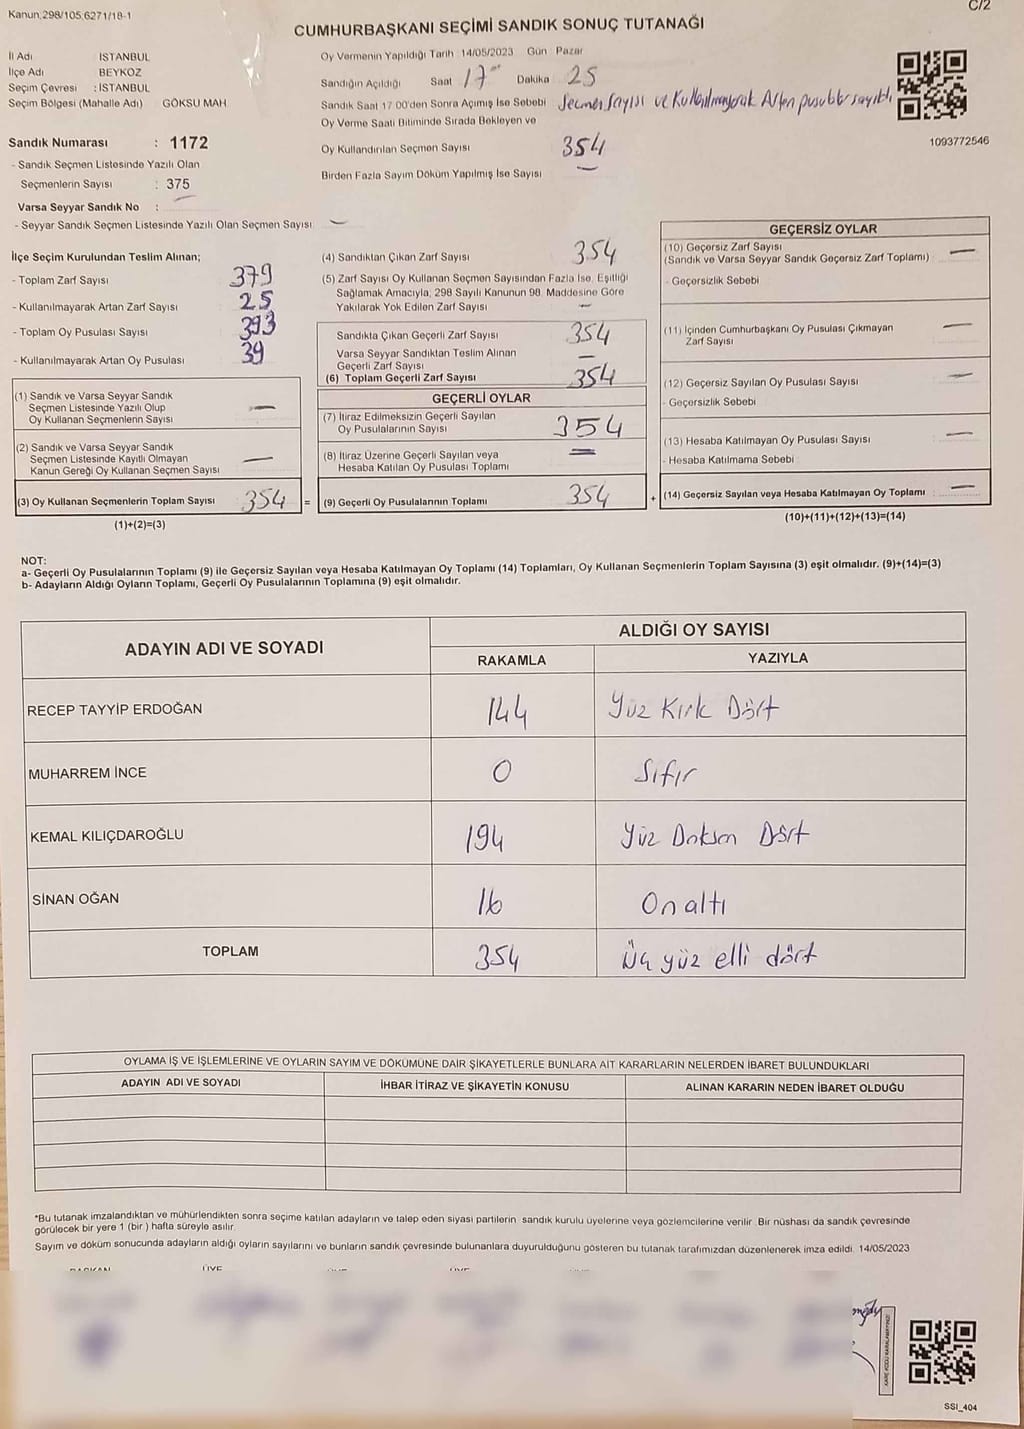 Kanun;298/105;6271/18-1
C/2
CUMHURBAŞKANI SEÇİMİ SANDIK SONUÇ TUTANAĞI
İl Adı : İSTANBUL
İlçe Adı : BEYKOZ
Seçim Çevresi : İSTANBUL
Seçim Bölgesi (Mahalle Adı) GÖKSU MAH
Sandık Numarası : 1172
- Sandık Seçmen Listesinde Yazılı Olan
Seçmenlerin Sayısı : 375
Varsa Seyyar Sandık No : —
- Seyyar Sandık Seçmen Listesinde Yazılı Olan Seçmen Sayısı: —
Oy Vermenin Yapıldığı Tarih :14/05/2023 Gün Pazar
Sandığın Açıldığı Saat 17 Dakika 25
Sandık Saat 17.00'den Sonra Açımış İse Sebebi Seçmen Sayısı ve Kullanılmayarak Artan pusulalar sayıldı
Oy Verme Saati Bitiminde Sırada Bekleyen ve
Oy Kullandırılan Seçmen Sayısı 354
Birden Fazla Sayım Döküm Yapılmış İse Sayısı —
1093772546
İlçe Seçim Kurulundan Teslim Alınan;
- Toplam Zarf Sayısı 379
- Kullanılmayarak Artan Zarf Sayısı 25
- Toplam Oy Pusulası Sayısı 393
- Kullanılmayarak Artan Oy Pusulası 39
(1) Sandık ve Varsa Seyyar Sandık
Seçmen Listesinde Yazılı Olup
Oy Kullanan Seçmenlerin Sayısı —
(2) Sandık ve Varsa Seyyar Sandık
Seçmen Listesinde Kayıtlı Olmayan
Kanun Gereği Oy Kullanan Seçmen Sayısı —
(3) Oy Kullanan Seçmenlerin Toplam Sayısı 354 =
(1)+(2)=(3)
(4) Sandıktan Çıkan Zarf Sayısı 354
(5) Zarf Sayısı Oy Kullanan Seçmen Sayısından Fazla İse, Eşitliği
Sağlamak Amacıyla; 298 Sayılı Kanunun 98. Maddesine Göre
Yakılarak Yok Edilen Zarf Sayısı —
Sandıkta Çıkan Geçerli Zarf Sayısı 354
Varsa Seyyar Sandıktan Teslim Alınan
Geçerli Zarf Sayısı —
(6) Toplam Geçerli Zarf Sayısı 354
GEÇERLİ OYLAR
(7) İtiraz Edilmeksizin Geçerli Sayılan
Oy Pusulalarının Sayısı 354
(8) İtiraz Üzerine Geçerli Sayılan veya
Hesaba Katılan Oy Pusulası Toplamı —
(9) Geçerli Oy Pusulalarının Toplamı 354 +
GEÇERSİZ OYLAR
(10) Geçersiz Zarf Sayısı
(Sandık ve Varsa Seyyar Sandık Geçersiz Zarf Toplamı) —
- Geçersizlik Sebebi
(11) İçinden Cumhurbaşkanı Oy Pusulası Çıkmayan
Zarf Sayısı —
(12) Geçersiz Sayılan Oy Pusulası Sayısı —
- Geçersizlik Sebebi
(13) Hesaba Katılmayan Oy Pusulası Sayısı —
- Hesaba Katılmama Sebebi
(14) Geçersiz Sayılan veya Hesaba Katılmayan Oy Toplamı —
(10)+(11)+(12)+(13)=(14)
NOT:
a- Geçerli Oy Pusulalarının Toplamı (9) ile Geçersiz Sayılan veya Hesaba Katılmayan Oy Toplamı (14) Toplamları, Oy Kullanan Seçmenlerin Toplam Sayısına (3) eşit olmalıdır. (9)+(14)=(3)
b- Adayların Aldığı Oyların Toplamı, Geçerli Oy Pusulalarının Toplamına (9) eşit olmalıdır.
ADAYIN ADI VE SOYADI
ALDIĞI OY SAYISI
RAKAMLA YAZIYLA
RECEP TAYYİP ERDOĞAN 144 Yüz Kırk Dört
MUHARREM İNCE 0 Sıfır
KEMAL KILIÇDAROĞLU 194 Yüz Doksan Dört
SİNAN OĞAN 16 Onaltı
TOPLAM 354 Üç yüz elli dört
OYLAMA İŞ VE İŞLEMLERİNE VE OYLARIN SAYIM VE DÖKÜMÜNE DAİR ŞİKAYETLERLE BUNLARA AİT KARARLARIN NELERDEN İBARET BULUNDUKLARI
ADAYIN ADI VE SOYADI İHBAR İTİRAZ VE ŞİKAYETİN KONUSU ALINAN KARARIN NEDEN İBARET OLDUĞU
*Bu tutanak imzalandıktan ve mühürlendikten sonra seçime katılan adayların ve talep eden siyasi partilerin sandık kurulu üyelerine veya gözlemcilerine verilir. Bir nüshası da sandık çevresinde
görülecek bir yere 1 (bir ) hafta süreyle asılır.
Sayım ve döküm sonucunda adayların aldığı oyların sayılarını ve bunların sandık çevresinde bulunanlara duyurulduğunu gösteren bu tutanak tarafımızdan düzenlenerek imza edildi. 14/05/2023
BAŞKAN ÜYE
KARE KODU KARALAMAYINIZ!
SSI_404